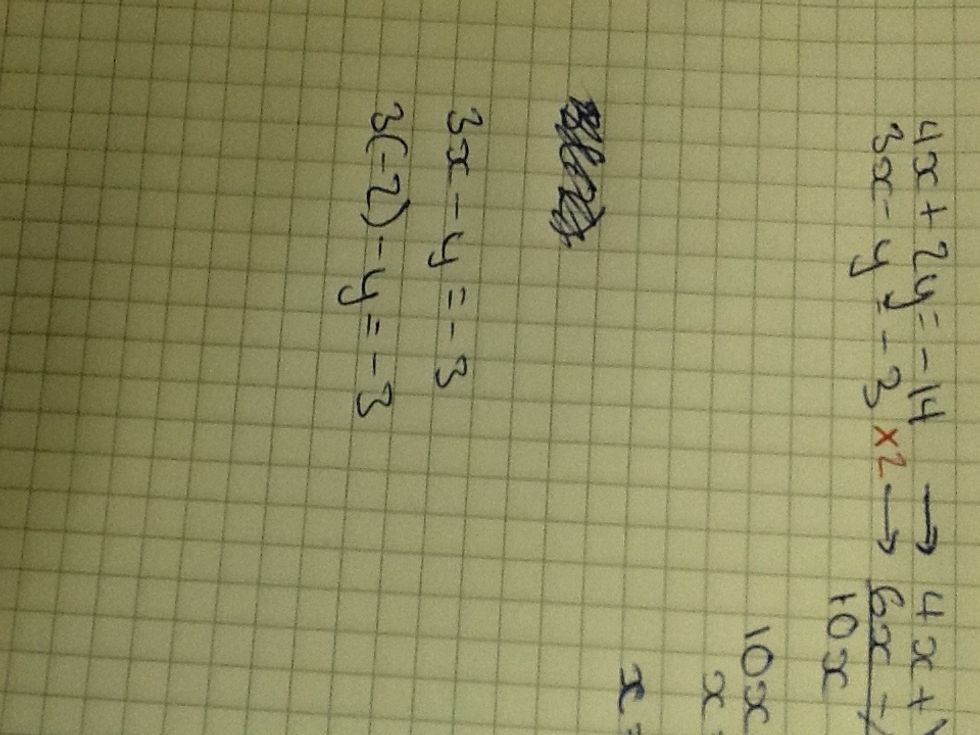 4x + 2y = -14 → 4x +
3x - y = -3 ×2 → 6x -
10x
10x
x =
x =
3x - y = -3
3(-2) - y = -3